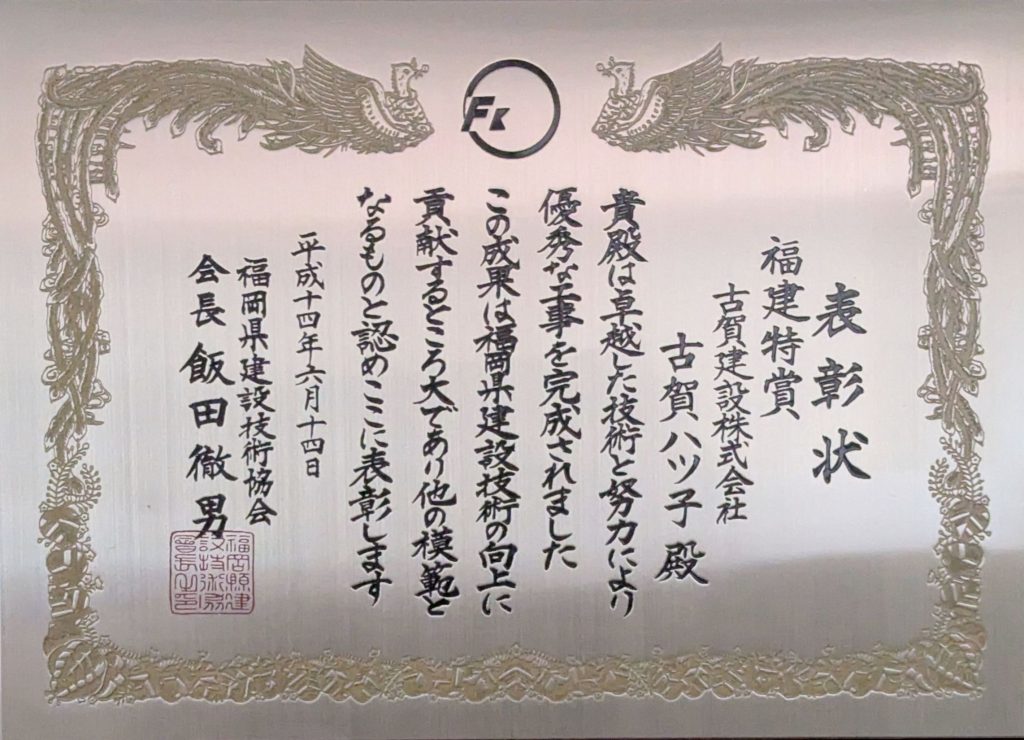 FK
表彰状
福建特賞
古賀建設株式会社
古賀ハツ子 殿
貴殿は卓越した技術と努力により
優秀な工事を完成されました
この成果は福岡県建設技術の向上に
貢献するところ大であり他の模範と
なるものと認めここに表彰します
平成十四年六月十四日
福岡県建設技術協会
会長 飯田徹男
福岡縣建
設技術協
會長之印